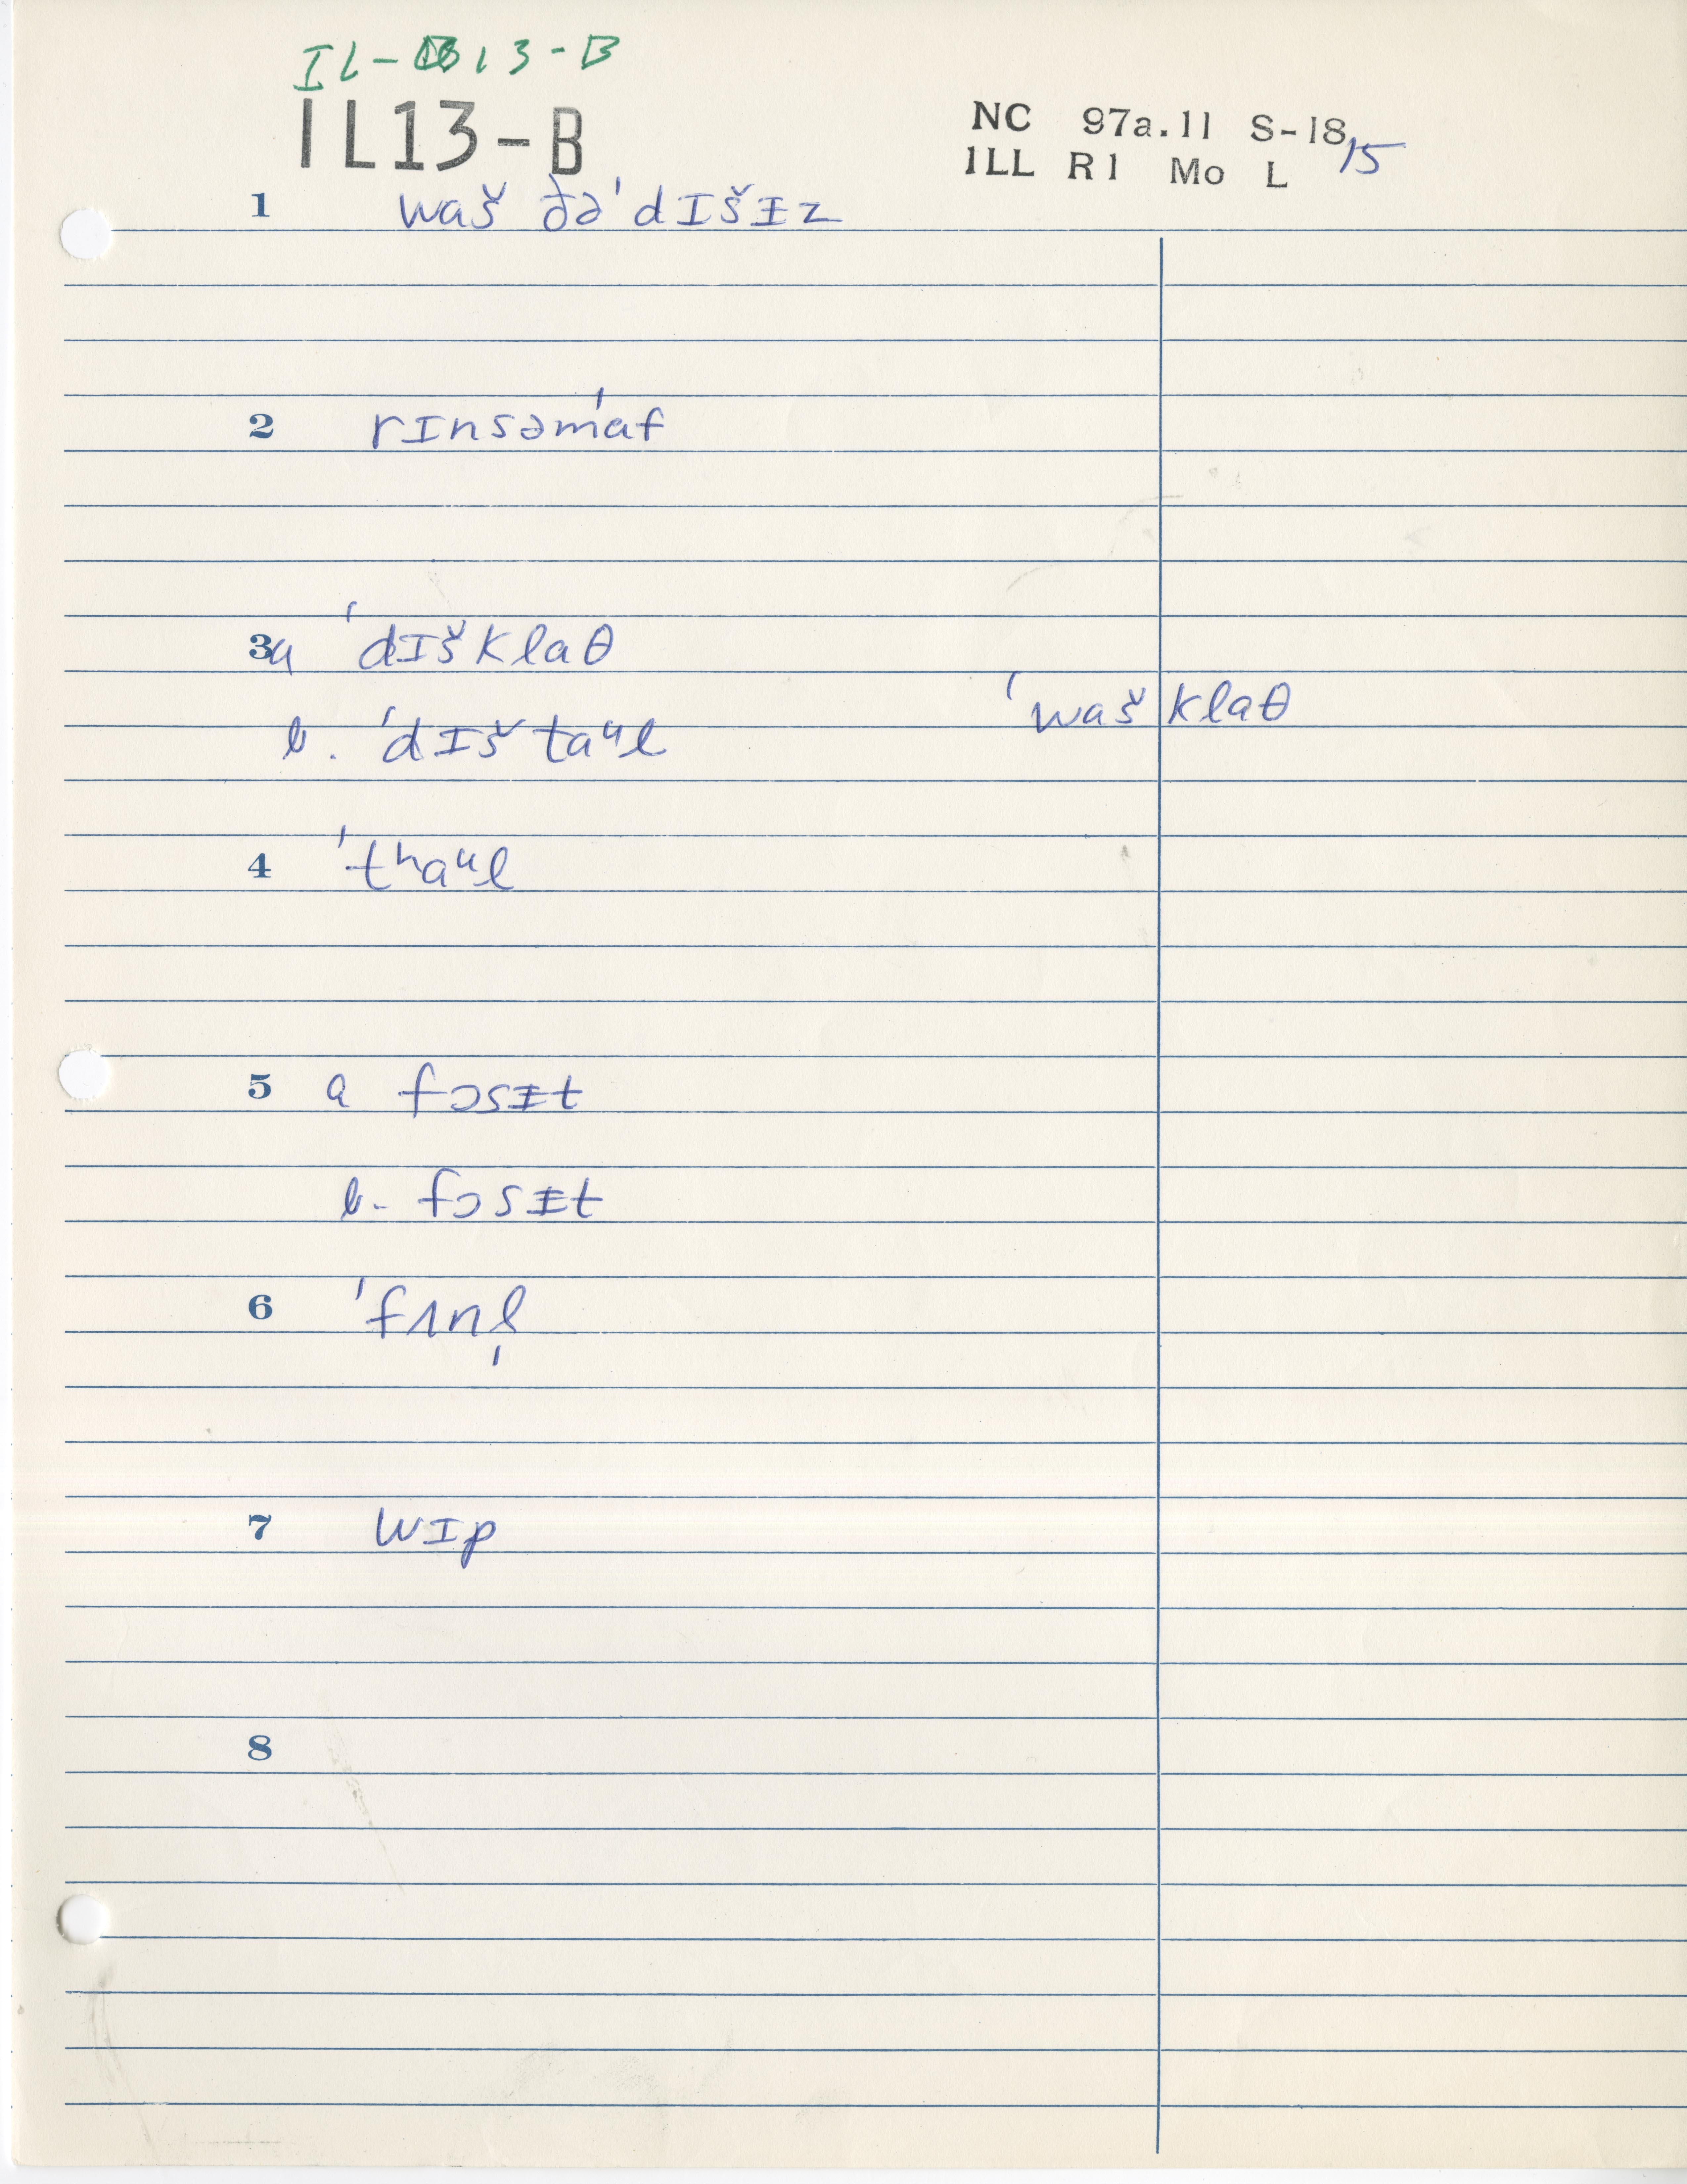 IL-13-B
IL13-B
NC 97a.11 S-18/15
ILL R1 Mo L
1 waš ðə'dɪšɨz
2 rɪnsəm'af
3a 'dɪšklaθ
'waš klaθ
b. 'dɪš taᵘl
4 'tʰaᵘl
5 a fɔsɨt
b. fɔsɨt
6 'fʌnl̩
7 wɪp
8